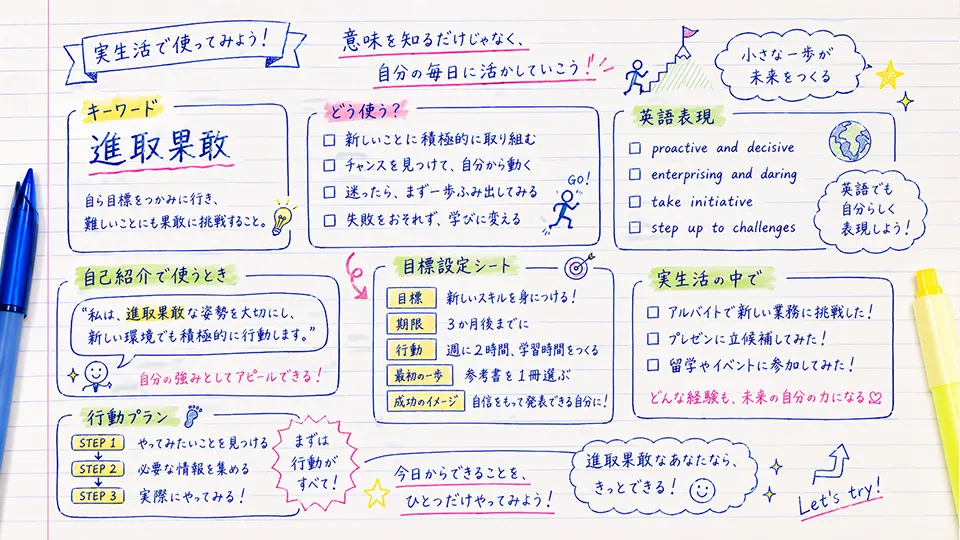 実生活で使ってみよう！
意味を知るだけじゃなく、
自分の毎日に活かしていこう！
小さな一歩が
未来をつくる
キーワード
進取果敢
自ら目標をつかみに行き、
難しいことにも果敢に挑戦すること。
どう使う？
新しいことに積極的に取り組む
チャンスを見つけて、自分から動く
迷ったら、まず一歩ふみ出してみる
失敗をおそれず、学びに変える
GO!
英語表現
proactive and decisive
enterprising and daring
take initiative
step up to challenges
英語でも
自分らしく
表現しよう！
自己紹介で使うとき
“私は、進取果敢な姿勢を大切にし、
新しい環境でも積極的に行動します。”
自分の強みとしてアピールできる！
目標設定シート
目標 新しいスキルを身につける！
期限 3か月後までに
行動 週に2時間、学習時間をつくる
最初の一歩 参考書を1冊選ぶ
成功のイメージ 自信をもって発表できる自分に！
実生活の中で
アルバイトで新しい業務に挑戦した！
プレゼンに立候補してみた！
留学やイベントに参加してみた！
どんな経験も、未来の自分の力になる♡
行動プラン
STEP 1 やってみたいことを見つける
STEP 2 必要な情報を集める
STEP 3 実際にやってみる！
まずは
行動が
すべて！
今日からできることを、
ひとつだけやってみよう！
進取果敢なあなたなら、
きっとできる！
Let's try!